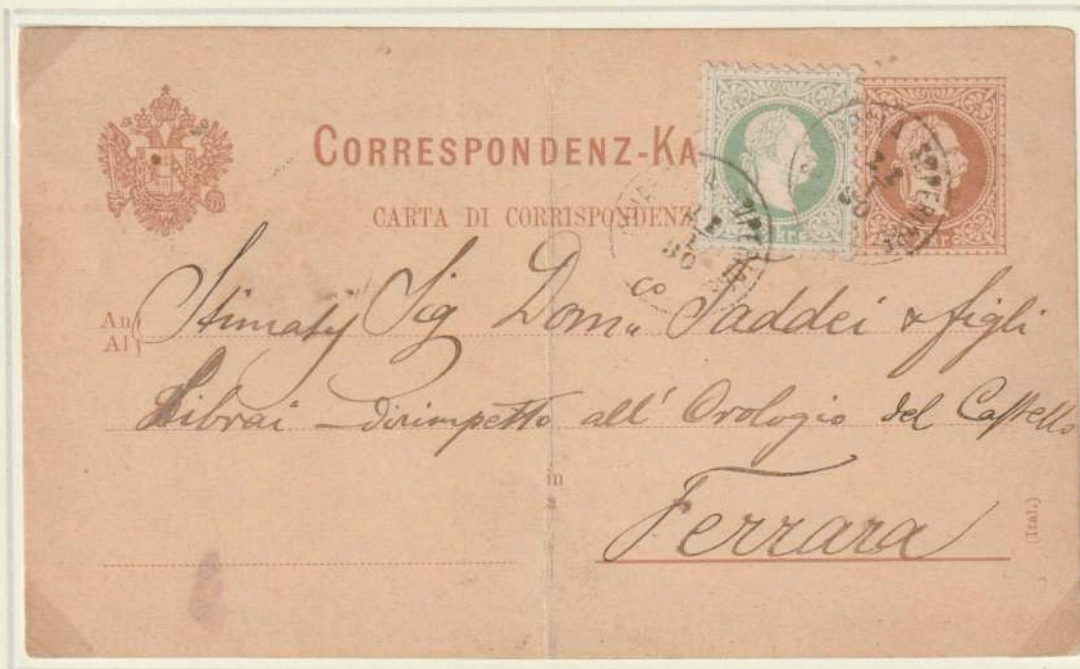 CORRESPONDENZ-KA
CARTA DI CORRISPONDENZ
An
Al
Stimat Sig Domco Taddei & figli
Librai – dirimpetto all' Orologio del Castello
in
a
Ferrara
(Ital.)